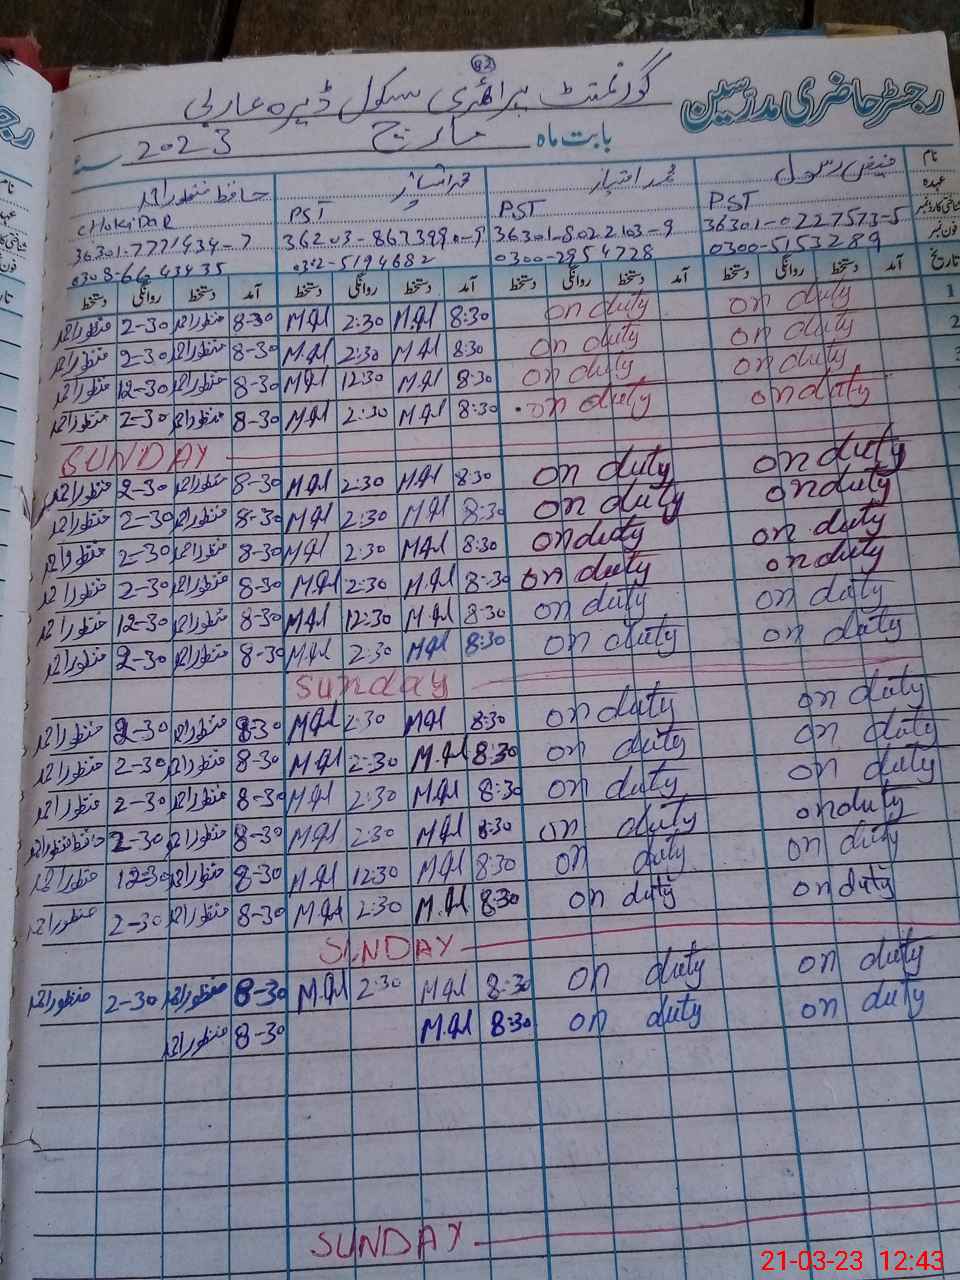 82
رجسٹر حاضری مدرسین گورنمنٹ پرائمری سکول ڈیرہ عاربی
بابت ماہ مارچ 2023 سنہ
نام فیض رسول محمد امتیاز حافظ منظور احمد
عہدہ PST PST PST CHOKIDAR
شناختی کارڈ نمبر 36301-0227573-5 36301-8022103-9 36301-7771434-7
فون نمبر 0300-5153289 0300-2954728 0302-5194682 0308-6643435
تاریخ آمد دستخط روانگی دستخط آمد دستخط روانگی دستخط آمد دستخط روانگی دستخط آمد دستخط روانگی دستخط
1 on duty on duty 8:30 2:30 8-30 منظور احمد 2-30 منظور احمد
2 on duty on duty 8:30 2:30 8-30 منظور احمد 2-30 منظور احمد
3 on duty on duty 8:30 12:30 8-30 منظور احمد 12-30 منظور احمد
on duty on duty 8:30 2:30 8-30 منظور احمد 2-30 منظور احمد
SUNDAY
on duty on duty 8:30 2:30 8-30 منظور احمد 2-30 منظور احمد
on duty on duty 8:30 2:30 8-30 منظور احمد 2-30 منظور احمد
on duty on duty 8:30 2:30 8-30 منظور احمد 2-30 منظور احمد
on duty on duty 8:30 2:30 8-30 منظور احمد 2-30 منظور احمد
on duty on duty 8:30 12:30 8-30 منظور احمد 12-30 منظور احمد
on duty on duty 8:30 2:30 8-30 منظور احمد 2-30 منظور احمد
sunday
on duty on duty 8:30 2:30 8-30 منظور احمد 2-30 منظور احمد
on duty on duty 8:30 2:30 8-30 منظور احمد 2-30 منظور احمد
on duty on duty 8:30 2:30 8-30 منظور احمد 2-30 منظور احمد
on duty on duty 8:30 2:30 8-30 منظور احمد 2-30 حافظ منظور احمد
on duty on duty 8:30 12:30 8-30 منظور احمد 12-30 منظور احمد
on duty on duty 8:30 2:30 8-30 منظور احمد 2-30 منظور احمد
SUNDAY
on duty on duty 8:30 2:30 8-30 منظور احمد 2-30 منظور احمد
on duty on duty 8:30 8-30 منظور احمد
SUNDAY
21-03-23 12:43